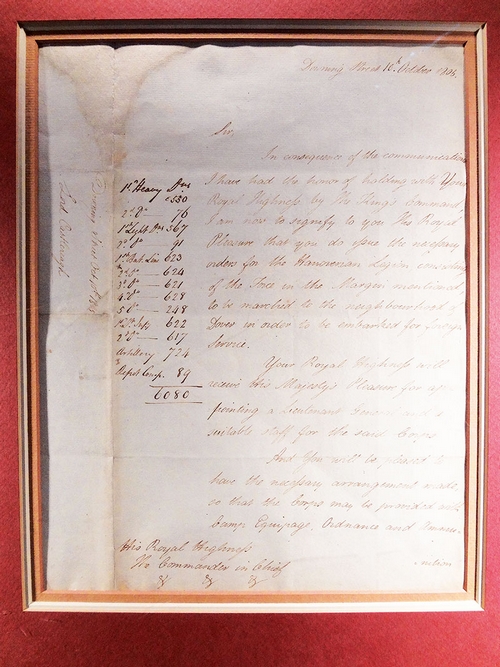 Downing Street 16th October 1805.
Sir,
In consequence of the communication
I have had the honor of holding with Your
Royal Highness by The King's Command
I am now to signify to you The Royal
Pleasure that you do issue the necessary
orders for the Hanoverian Legion consisting
of the Force in the Margin mentioned
to be marched to the neighbourhood of
Dover in order to be embarked for foreign
Service.
Your Royal Highness will
receive His Majesty's Pleasure for appointing
pointing a Lieutenant General and a
suitable staff for the said Corps
And You will be pleased to
have the necessary arrangement made,
so that the Corps may be provided with
Camp Equipage, Ordnance and
1st Heavy Drs
530
2d Do 76
1st Light Drs 567
2d Do 91
1st Bat. Line 623
2d Do 624
3d Do 621
4 Do 628
5 Do 248
1st Lt Infy 622
2d Do 617
Artillery 724
Depot Comp. 89
6080
His Royal Highness
The Commander in Chief
&c &c &c
Downing Street
Lord Castlereagh